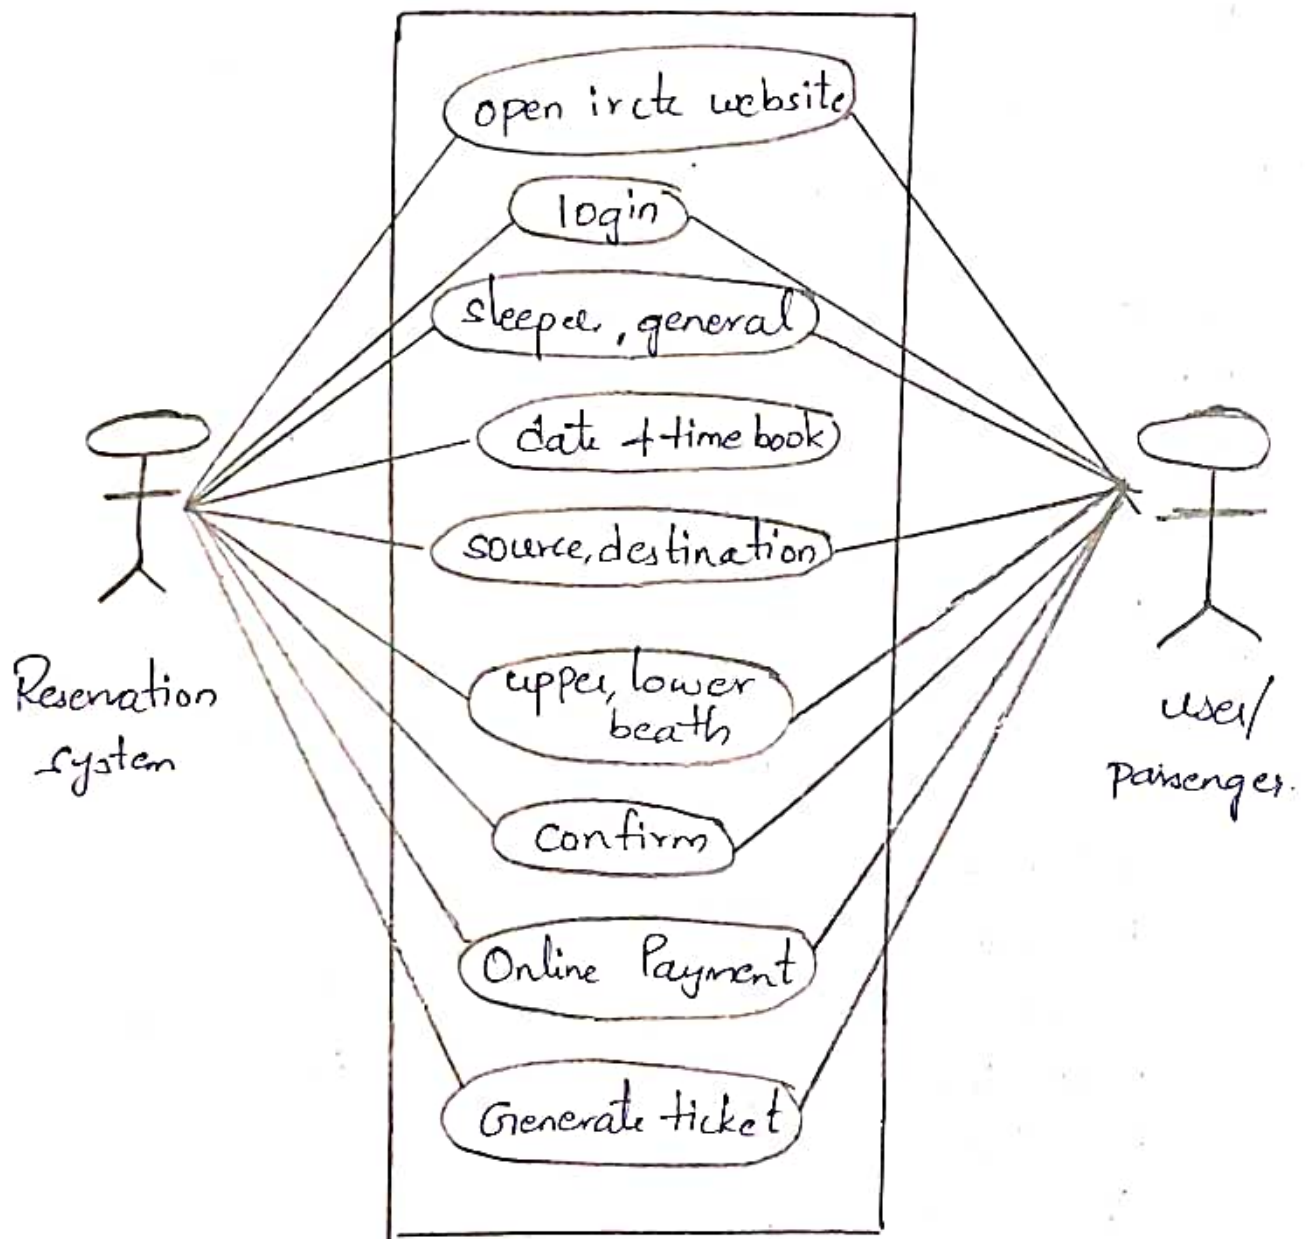 open irctc website
login
sleeper, general
date + time book
source, destination
upper, lower
beath
confirm
Online Payment
Generate ticket
Reservation
system
user/
passenger.